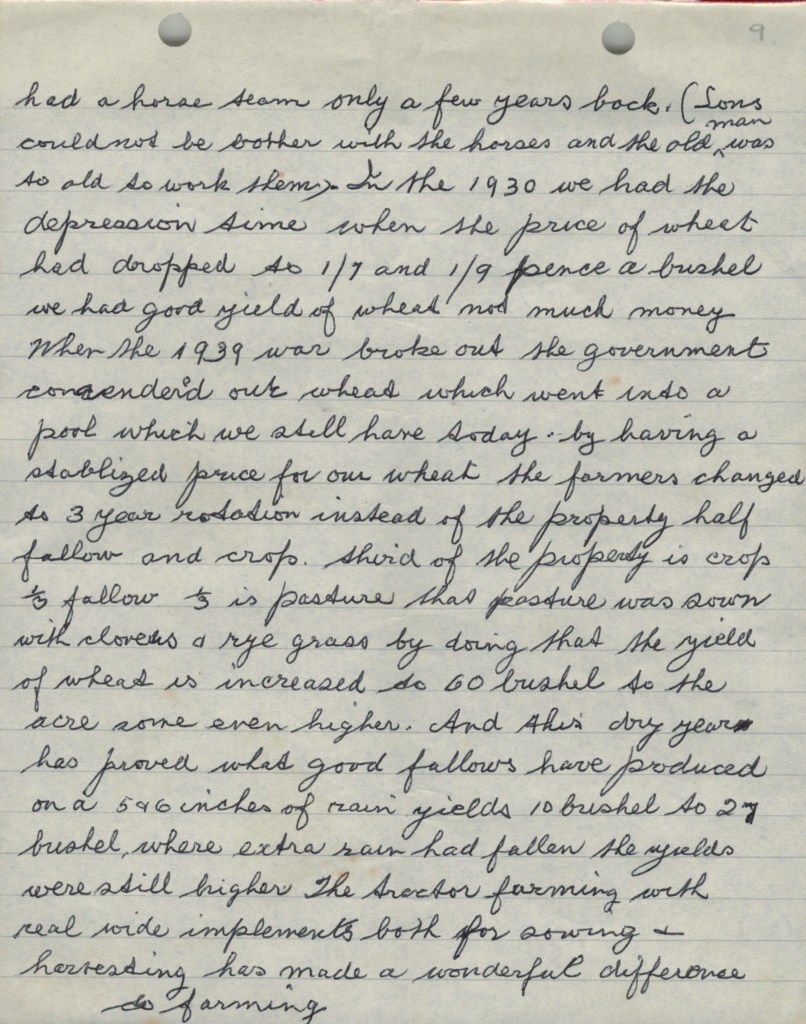 9
had a horse team only a few years back. (Sons
could not be bother with the horses and the old man was
to old to work them). In the 1930 we had the
depression time when the price of wheat
had dropped to 1/7 and 1/9 pence a bushel
we had good yield of wheat not much money
When the 1939 war broke out the government
our wheat which went into a
pool which we still have today. by having a
stablized price for our wheat the farmers changed
to 3 year rotation instead of the property half
fallow and crop. third of the property is crop
⅓ fallow ⅓ is pasture that pasture was sown
with clovers & rye grass by doing that the yield
of wheat is increased to 60 bushel to the
acre some even higher. And this dry year
has proved what good fallows have produced
on a 5&6 inches of rain yields 10 bushel to 27
bushel, where extra rain had fallen the yields
were still higher The tractor farming with
real wide implements both for sowing +
harvesting has made a wonderful difference
to farming